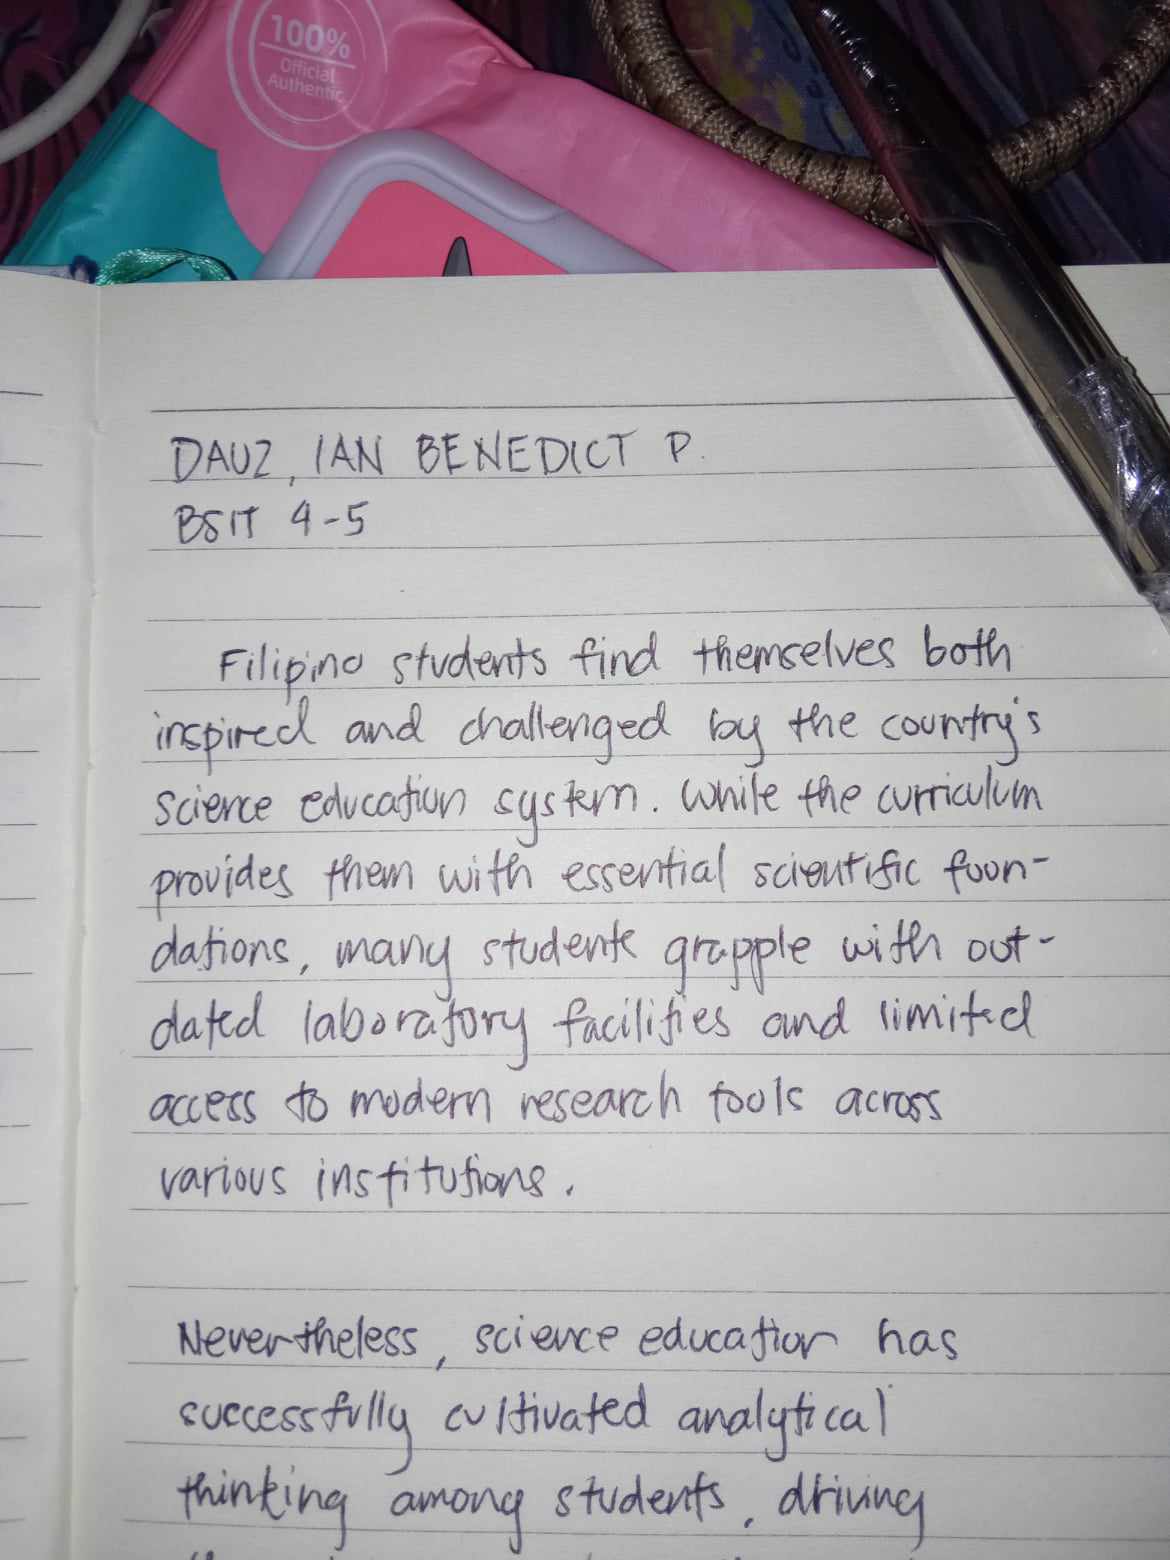 100%
Official
Authentic
DAUZ, IAN BENEDICT P.
BSIT 4-5
Filipino students find themselves both
inspired and challenged by the country's
science education system. While the curriculum
provides them with essential scientific foun-
dations, many students grapple with out-
dated laboratory facilities and limited
access to modern research tools across
various institutions.
Nevertheless, science education has
successfully cultivated analytical
thinking among students, driving